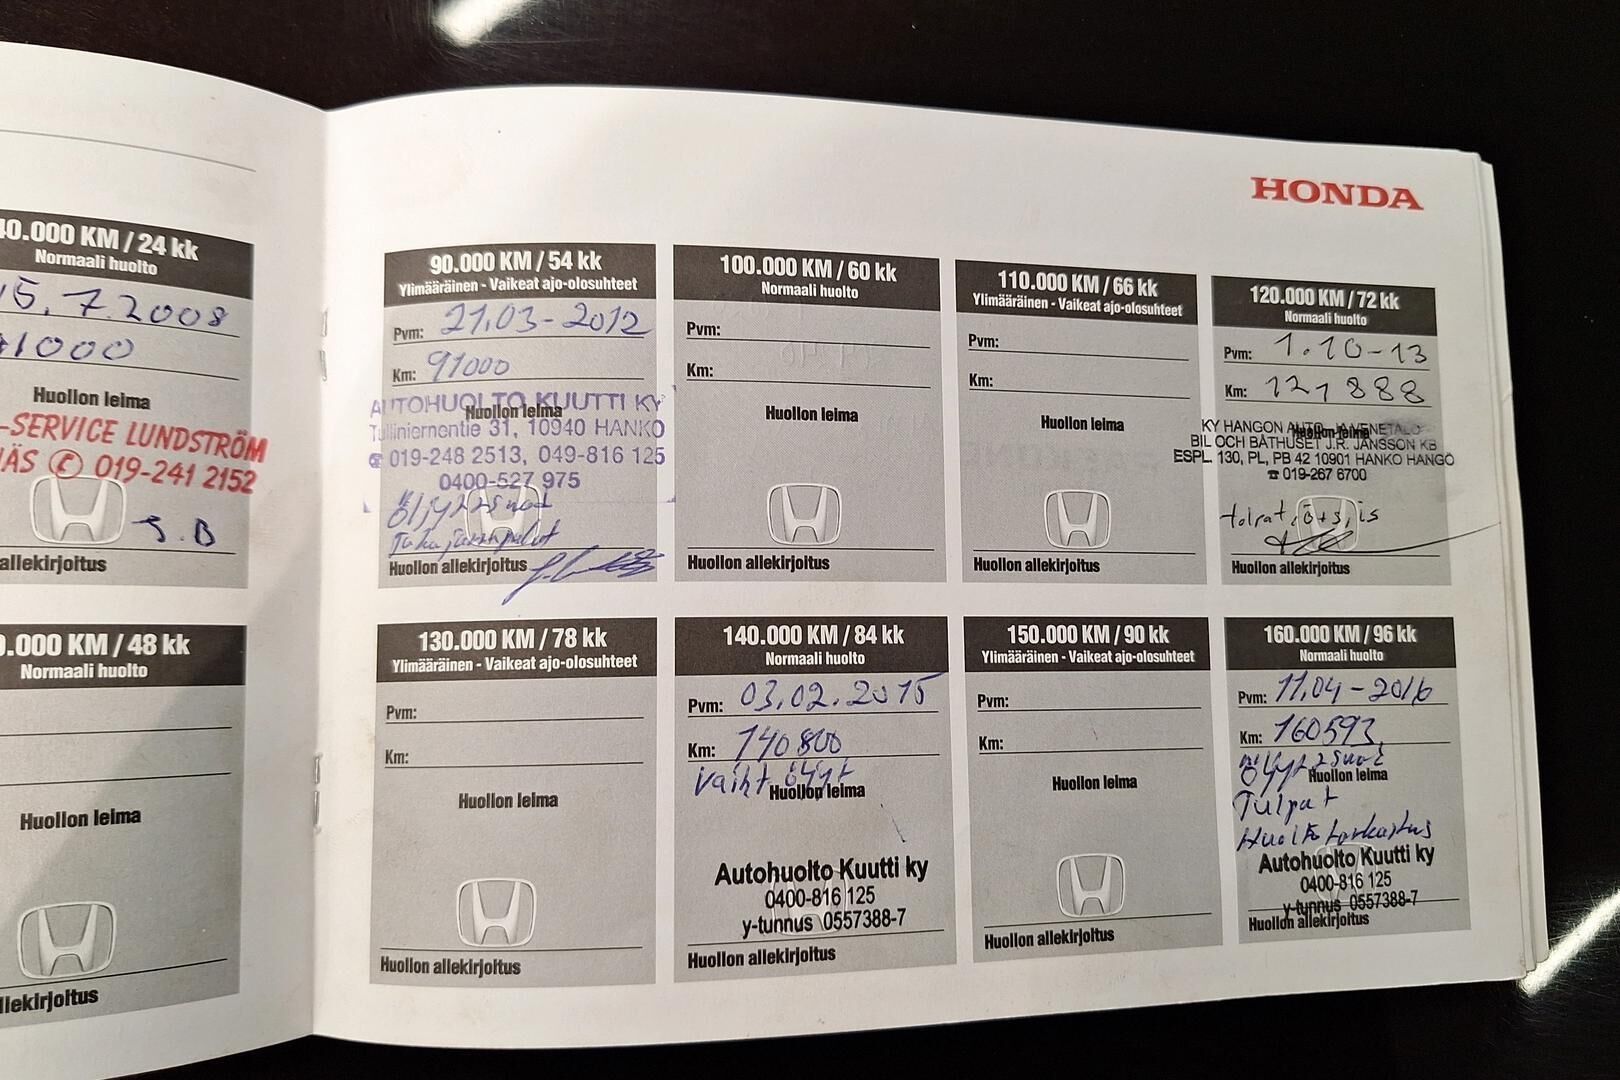 40.000 KM / 24 kk
Normaali huolto
15.7.2008
41000
Huollon leima
-SERVICE LUNDSTRÖM
ÄS ✆ 019-241 2152
S.B
allekirjoitus
.000 KM / 48 kk
Normaali huolto
Huollon leima
allekirjoitus
HONDA
90.000 KM / 54 kk
Ylimääräinen - Vaikeat ajo-olosuhteet
Pvm: 21.03-2012
Km: 91000
Huollon leima
AUTOHUOLTO KUUTTI KY
Tulliniementie 31, 10940 HANKO
☎ 019-248 2513, 049-816 125
0400-527 975
Huollon allekirjoitus
100.000 KM / 60 kk
Normaali huolto
Pvm:
Km:
Huollon leima
Huollon allekirjoitus
110.000 KM / 66 kk
Ylimääräinen - Vaikeat ajo-olosuhteet
Pvm:
Km:
Huollon leima
Huollon allekirjoitus
120.000 KM / 72 kk
Normaali huolto
Pvm: 1.10-13
Km: 121 888
Huollon leima
KY HANGON AUTO- JA VENETALO
BIL OCH BÅTHUSET J.R. JANSSON KB
ESPL. 130, PL, PB 42 10901 HANKO HANGÖ
☎ 019-267 6700
tolpat, ö+s, is
Huollon allekirjoitus
130.000 KM / 78 kk
Ylimääräinen - Vaikeat ajo-olosuhteet
Pvm:
Km:
Huollon leima
Huollon allekirjoitus
140.000 KM / 84 kk
Normaali huolto
Pvm: 03.02.2015
Km: 140800
Vaiht öljyt
Huollon leima
Autohuolto Kuutti ky
0400-816 125
y-tunnus 0557388-7
Huollon allekirjoitus
150.000 KM / 90 kk
Ylimääräinen - Vaikeat ajo-olosuhteet
Pvm:
Km:
Huollon leima
Huollon allekirjoitus
160.000 KM / 96 kk
Normaali huolto
Pvm: 11.04-2016
Km: 160593
Huollon leima
Tulpat
Huolto tarkastus
Autohuolto Kuutti ky
0400-816 125
y-tunnus 0557388-7
Huollon allekirjoitus